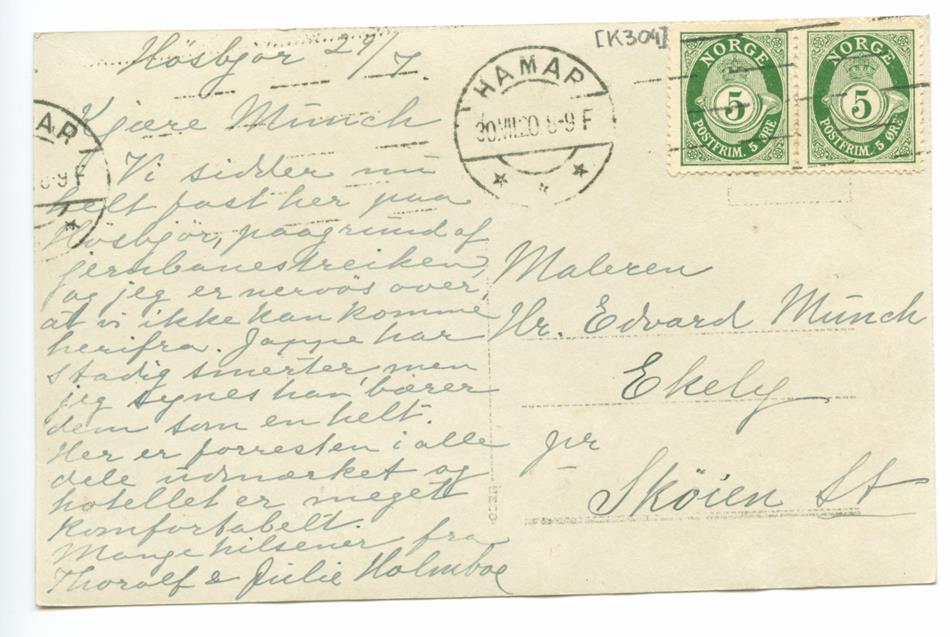 Hösbjør 29/7.
Kjære Munch
Vi sidder nu
helt fast her paa
Hösbjör, paagrund af
jernbanestreiken,
og jeg er nervös over,
at vi ikke kan komme
herifra. Jappe har
stadig smerter men
jeg synes han bærer
dem som en helt.
Her er forresten i alle
dele udmærket og
hotellet er meget
komfortabelt.
Mange hilsener fra
Thorolf & Julie Holmboe
[K304]
HAMAR
30.VII.20. 8-9 F
AR
8-9 F
NORGE
5
POSTFRIM. 5 ØRE
NORGE
5
POSTFRIM. 5 ØRE
Maleren
Hr. Edvard Munch
Ekely
pr
Skøien St